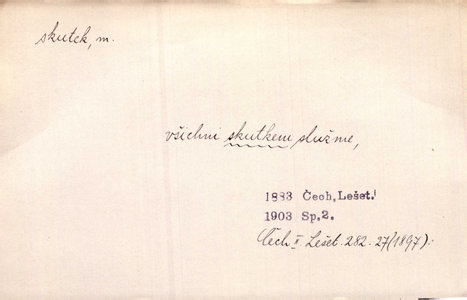 skutek, m.
všichni skutkem služme,
1883 Čech, Lešet.
1903 Sp.2.
Čech II Lešet. 282. 27 (1897).